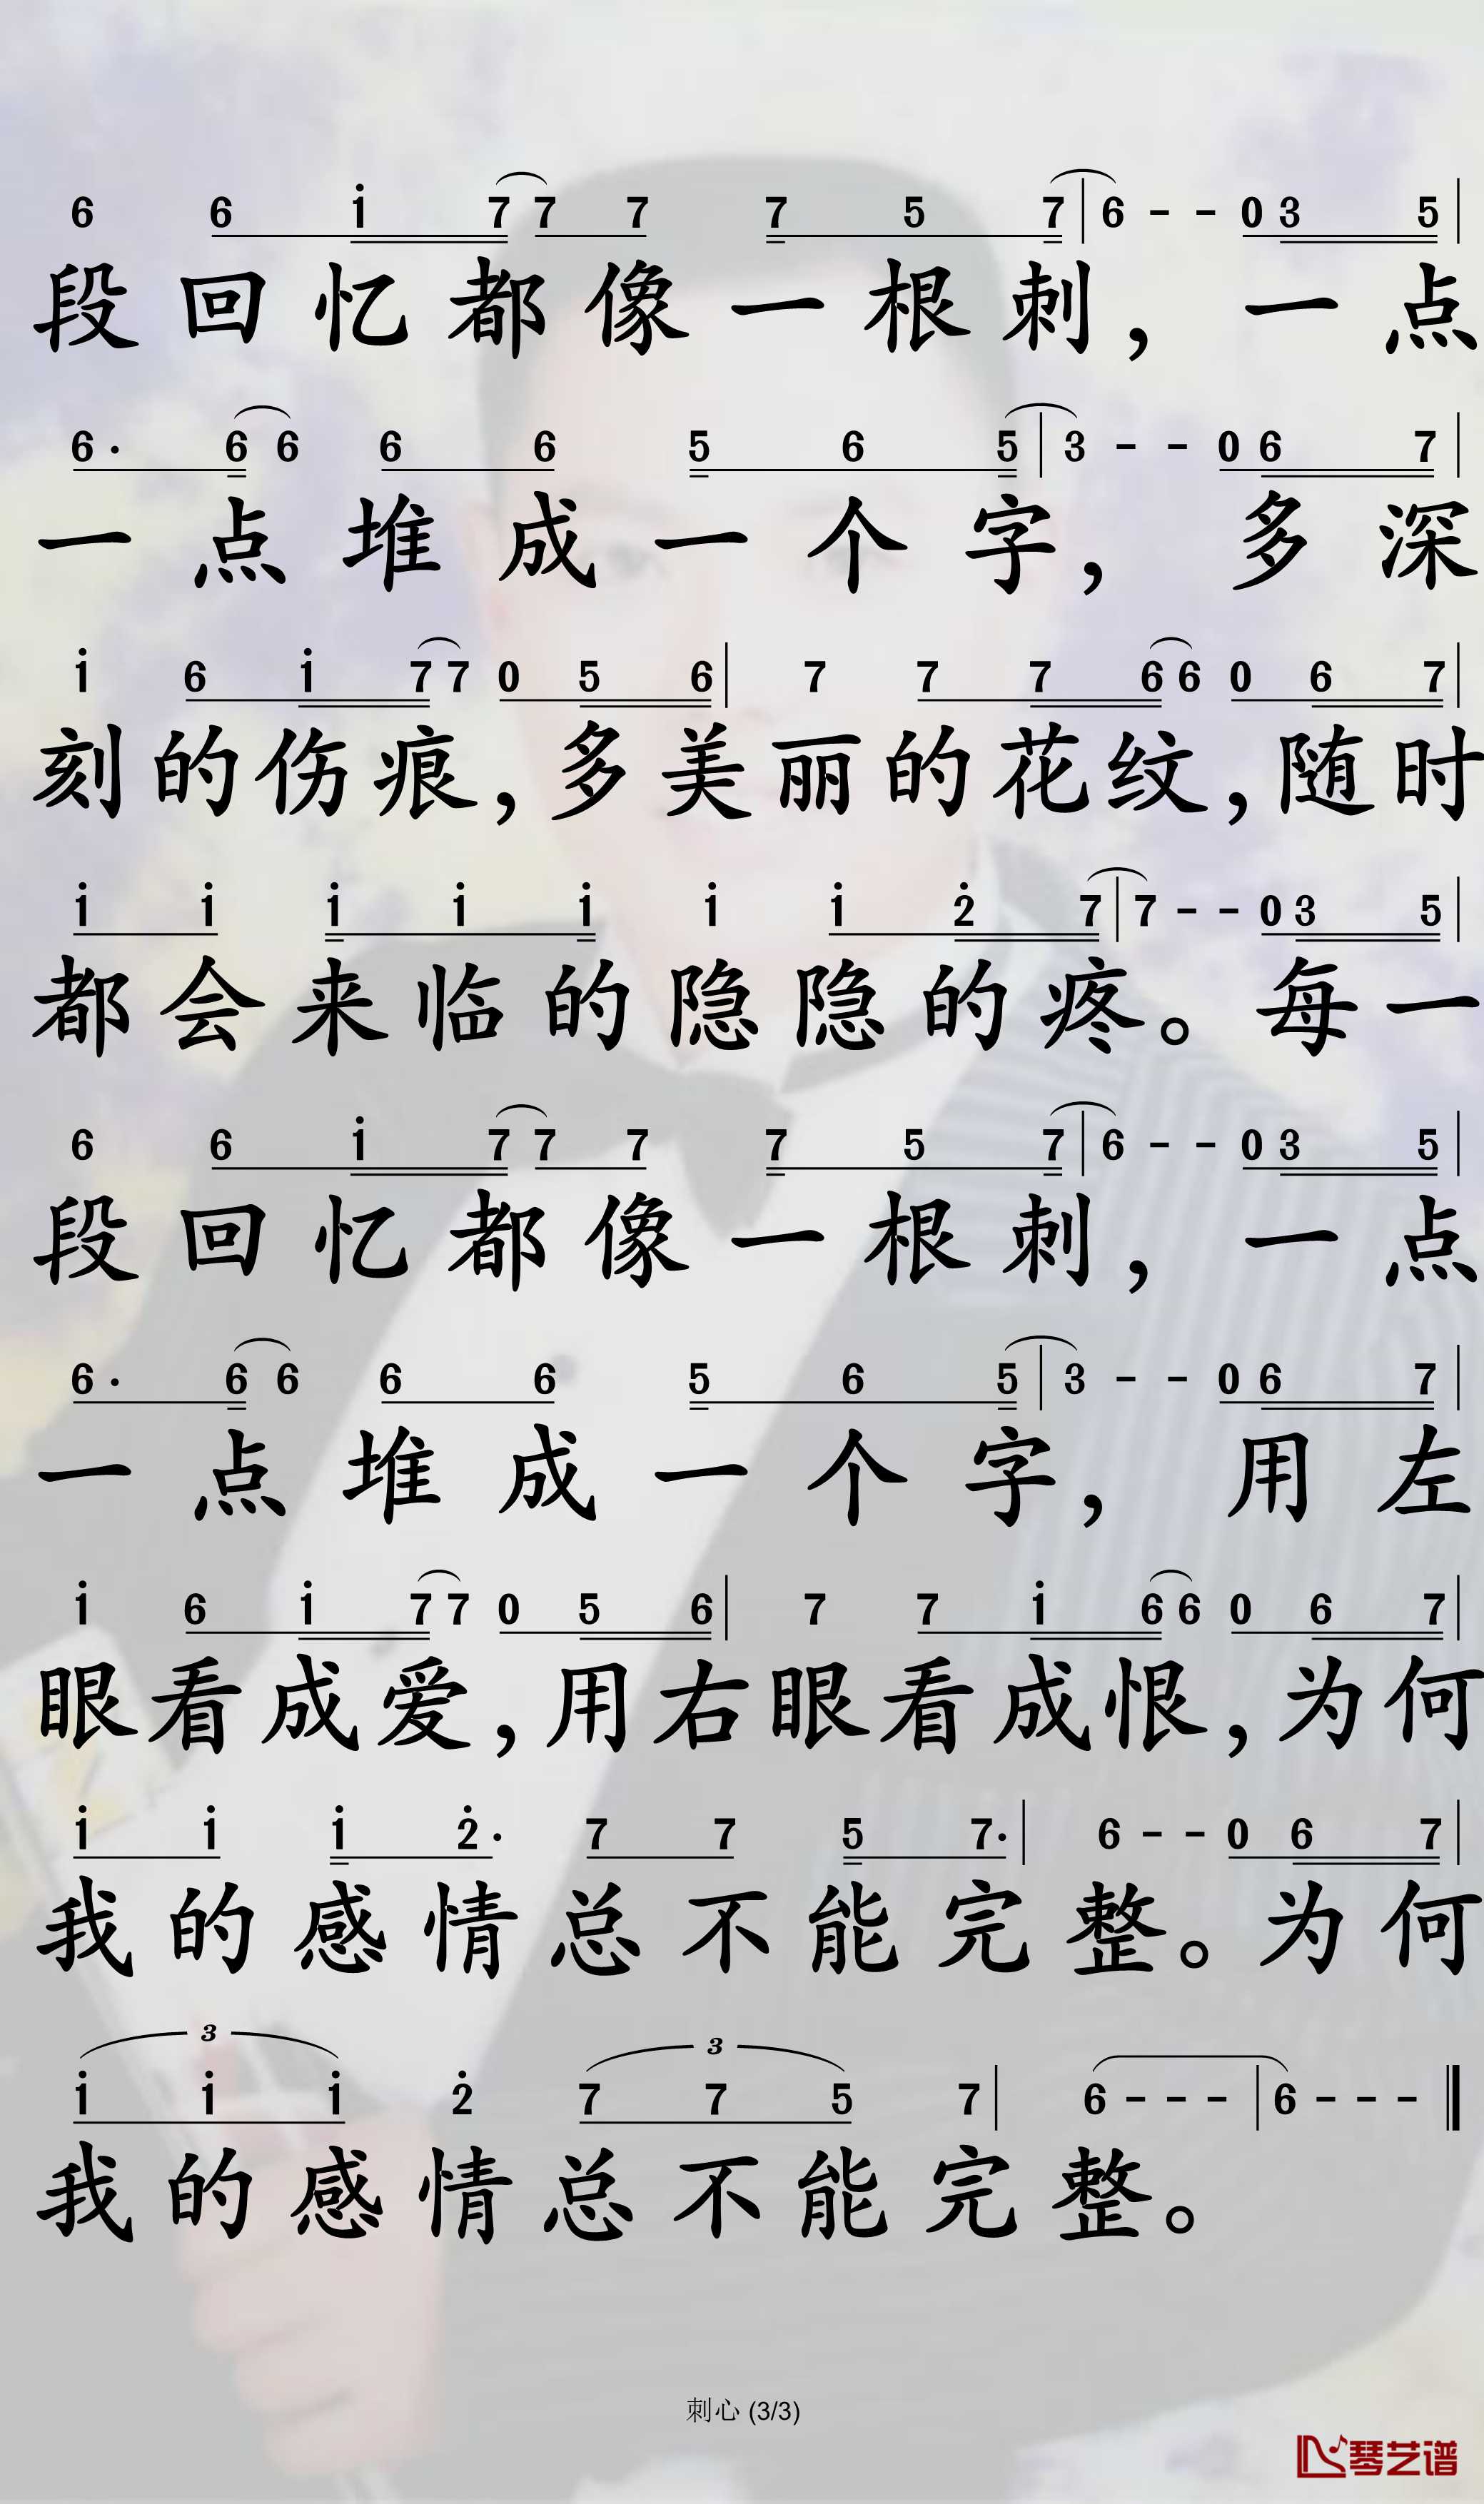 6 6 i 7 7 7 7 5 7 | 6 - - 0 3 5 |
段回忆都像一根刺，一点
6· 6 6 6 6 5 6 5 | 3 - - 0 6 7 |
一点堆成一个字，多深
i 6 i 7 7 0 5 6 | 7 7 7 6 6 0 6 7 |
刻的伤痕，多美丽的花纹，随时
i i i i i i i 2̇ 7 | 7 - - 0 3 5 |
都会来临的隐隐的疼。每一
6 6 i 7 7 7 7 5 7 | 6 - - 0 3 5 |
段回忆都像一根刺，一点
6· 6 6 6 6 5 6 5 | 3 - - 0 6 7 |
一点堆成一个字，用左
i 6 i 7 7 0 5 6 | 7 7 i 6 6 0 6 7 |
眼看成爱，用右眼看成恨，为何
i i i 2̇· 7 7 5 7· | 6 - - 0 6 7 |
我的感情总不能完整。为何
3 3
i i i 2̇ 7 7 5 7 | 6 - - - | 6 - - - ‖
我的感情总不能完整。
刺心 (3/3)
琴艺谱